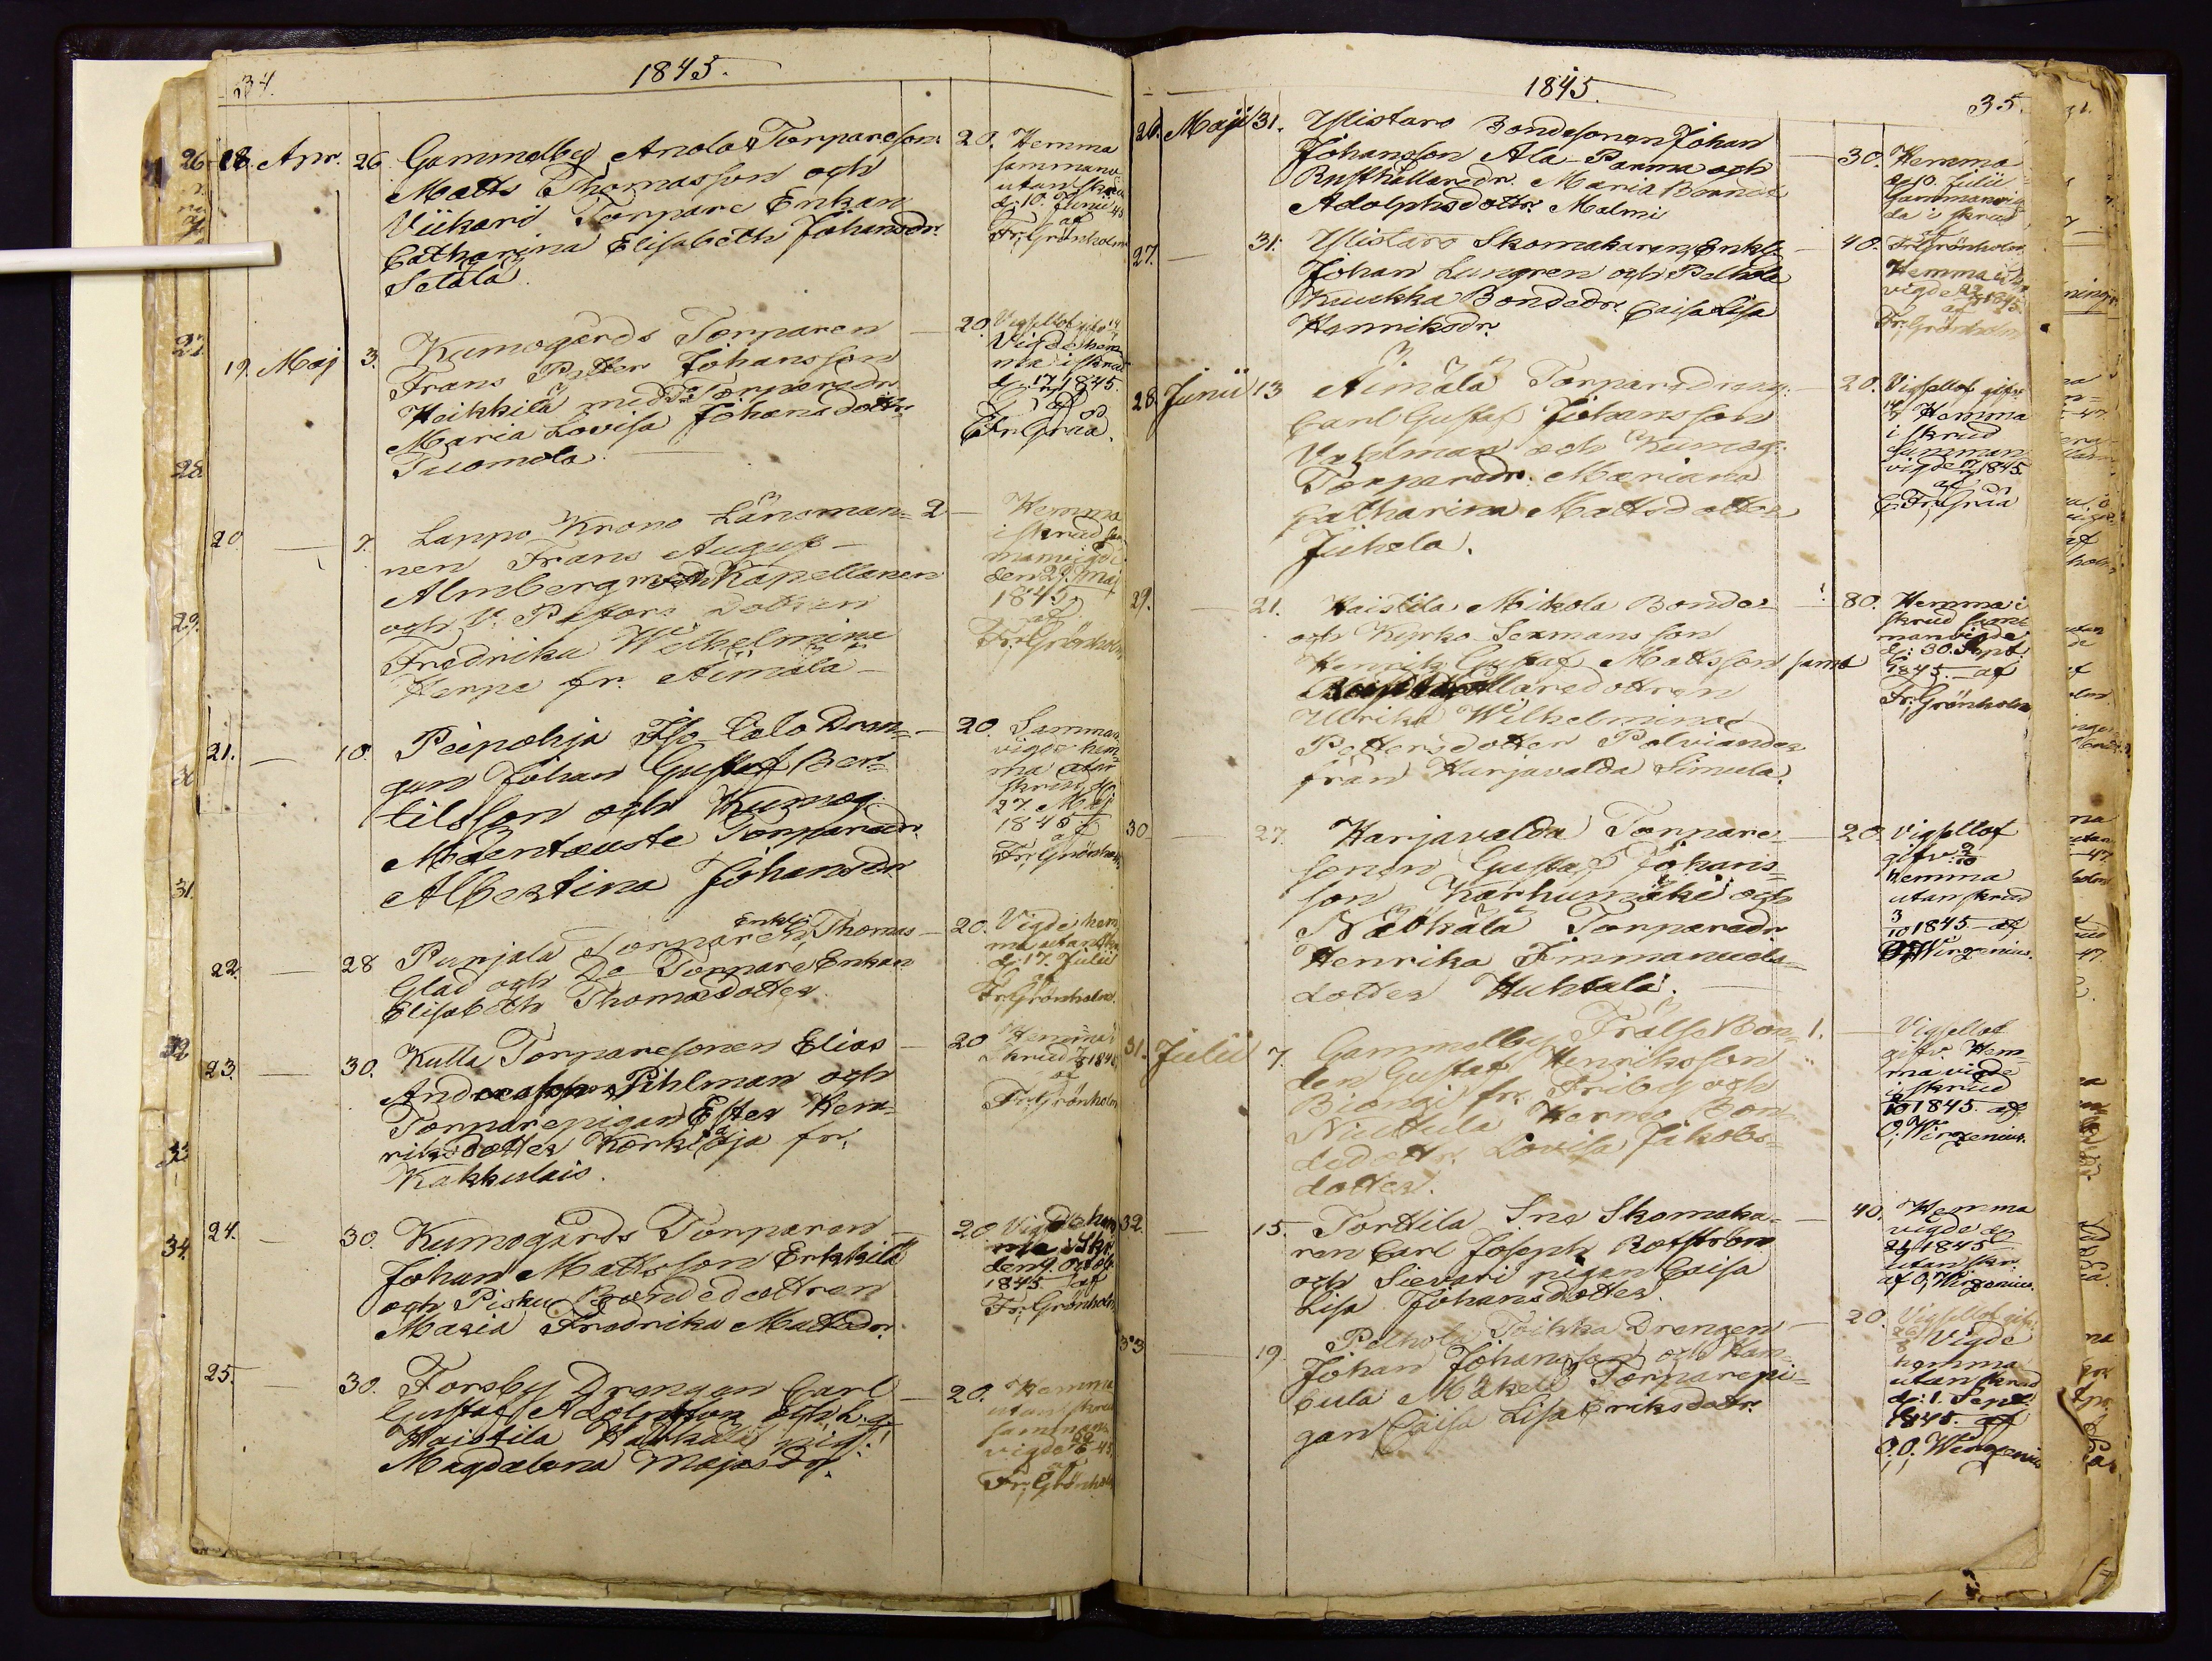 34.
1845.
18. Apr. 26. Gammelby Anola Torpareson
Matts Thomasson och
Viikari Torpare Enkan
Catharina Elisabeth Johansdr.
Setälä.
20. Hemma
sammanv.
utan skrud
d. 10. Junii 45
af
Fr. Grönholm
19. Maj 3. Kumogårds Torparen
Frans Petter Johansson
Heikkilä med do Torparedr.
Maria Lovisa Johansdotter
Tuomola.
20. Vigsellof gifv.
Vigde hem-
ma i skrud
d. 17 1845.
af
C. Fr. Graa.
20 — 7. Lappo Krono Länsman-
nen Frans August
Almberg med Kapellanen
och V. Pastors dottren
Fredrika Wilhelmina
Herpe fr. Äimälä
2 — Hemma
i skrud sam
manvigde
den 29. Maj
1845.
af
Fr. Grönholm
21. — 10. Peipohja Iso Colo Dren-
gen Johan Gustaf Ber-
tilsson och Kumog.
Mäentauste Torparedr.
Albertina Johansdr.
20. Samman
vigde hem-
ma utan
skrud d.
27. Maj
1845
af
Fr. Grönholm
22. — 28 Punjala Torpare Enkl. Thomas
Glad och Do Torpare Enkan
Elisabeth Thomasdotter.
20. Vigde hem
ma utan skr.
d. 17. Julii
af
Fr. Grönholm.
23. — 30. Kulla Torparesonen Elias
Andersson Pihlman och
Torparepigan Ester Hen-
riksdotter Korkeoja fr.
Kakkulais.
20 Hemma i
skrud 1845
af
Fr. Grönholm
24. — 30. Kumogårds Torparen
Johan Mattsson Erkkilä
och Pisku Bondedottren
Maria Fredrika Mattsdr.
20. Vigde hem
ma i Skr.
den 9. Octob.
1845 af
Fr. Grönholm
25. — 30. Forsby Drengen Carl
Gustaf Adolfsson och
Haistila Harkälä pig.
Magdalena Majasdr.
20. Hemma
utan skrud
samman-
vigde 45
af
Fr. Grönholm
1845.
35.
26. Maji 31. Ylistaro Bondesonen Johan
Johansson Ala-Panma och
Rusthållaredr. Maria
Adolphsdotter Malmi
30. Hemma
d. 10. Julii
Sammanvig
da i skrud
af
Fr. Grönholm
27. — 31. Ylistaro Skomakaren Enkl.
Johan Lungren och Pelhola
Kuukka Bondedr. Caisa Lisa
Henriksdr.
40. Hemma
vigde 1845
af
Fr. Grönholm
28. Junii 13 Äimälä Torparedreng.
Carl Gustaf Johansson
och Kumog.
Torparedr. Mariana
Catharina Mattsdotter
Juhola.
20. Vigsellof gifv.
Hemma
i skrud
samman
vigde 1845.
af
C. Fr. Graa
29. — 21. Haistila Mikola Bonde
och Kyrko Sexmans son
Henrik Gustaf Mattsson samt
Rusthållaredottren
Ullrika Wilhelmina
Pettersdotter Polviander
från Harjavalda Simula.
80. Hemma i
skrud sam
manvigde
d: 30. Sept.
1845. af
Fr. Grönholm
30 — 27. Harjavalda Torpare-
sonen Gustaf Johans-
son Karhumäki och
Nakkila Torparedr.
Henrika Immanuels-
dotter Huhtala.
20. Vigsellof
gifv. 2/10
Hemma
utan skrud
3/10 1845 af
O. Wirzenius.
31. Julii 7. Gammelby Frälse Bon-
den Gustaf Henriksson
fr. Friby och
Niuttula Hermo Bon-
dedottr. Lovisa Jakobs-
dotter.
1. — Vigsellof
gifv. Hem
ma vigde
i skrud
1845. af
O. Wirzenius.
32. — 15. Torttila Sne Skomaka-
ren Carl Joseph Rosström
och Sievari pigan Caisa
Lisa Johansdotter.
40. Hemma
vigde d.
1845
utan skr.
af O. Wirzenius.
33 — 19. Pelhola Toikka Drengen
Johan Johansson och Kan-
cula Mäkelä Torparepi-
gan Caisa Lisa Eriksdotr.
20. Vigsellof gifv.
Vigde
hemma
utan skrud
d: 1. Sept.
1845. af
O. Wirzenius